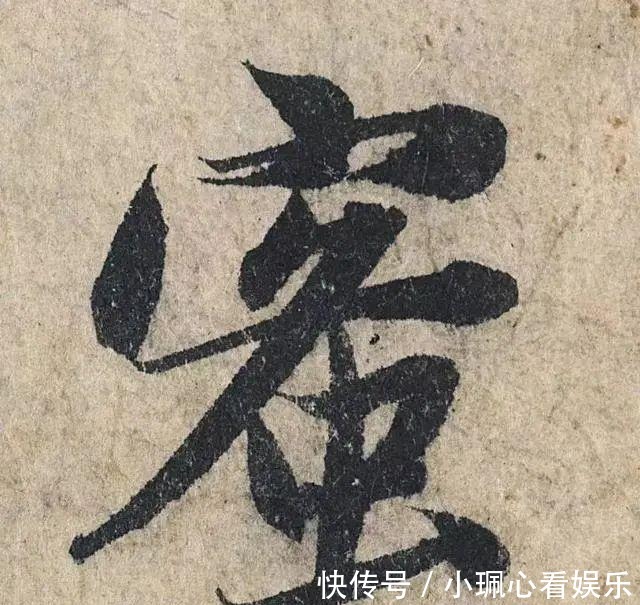 蜜
快传号 / 小珮心看娱乐